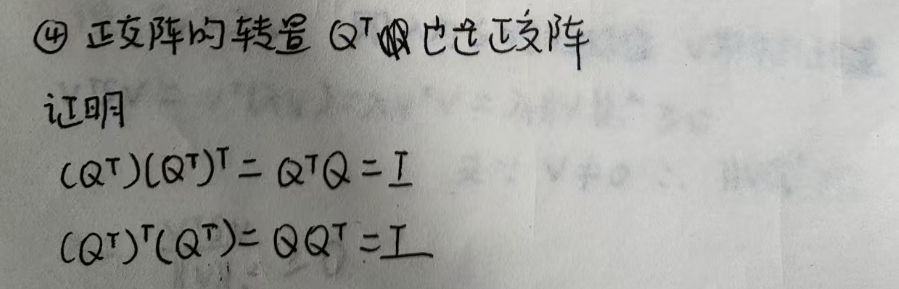 ④ 正交阵的转置 Qᵀ 也是正交阵
证明
(Qᵀ)(Qᵀ)ᵀ = QᵀQ = I
(Qᵀ)ᵀ(Qᵀ) = QQᵀ = I